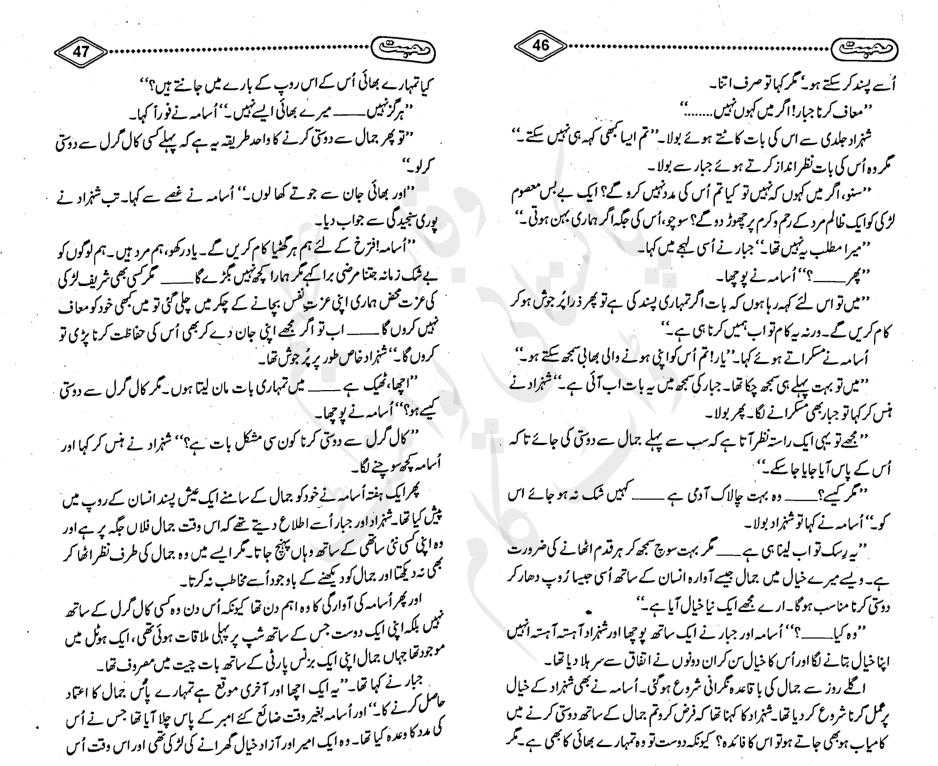 محبت 46
اُسے پسند کر سکتے ہو۔‘‘ مگر کہا تو صرف اتنا۔
’’معاف کرنا جبار! اگر میں کہوں نہیں........‘‘
شہزاد جلدی سے اس کی بات کاٹتے ہوئے بولا۔ ’’تم ایسا کبھی کہہ ہی نہیں سکتے۔‘‘
مگر وہ اُس کی بات نظر انداز کرتے ہوئے جبار سے بولا۔
’’سنو، اگر میں کہوں کہ نہیں تو کیا تم اُس کی مدد نہیں کرو گے؟ ایک بے بس معصوم
لڑکی کو ایک ظالم مرد کے رحم و کرم پر چھوڑ دو گے؟ سوچو، اُس کی جگہ اگر ہماری بہن ہوتی۔‘‘
’’میرا مطلب یہ نہیں تھا۔‘‘ جبار نے اُسی لہجے میں کہا۔
’’پھر ____؟‘‘ اُسامہ نے پوچھا۔
’’میں تو اس لئے کہہ رہا ہوں کہ بات اگر تمہاری پسند کی ہے تو پھر ذرا پُر جوش ہو کر
کام کریں گے۔ ورنہ یہ کام تو اب ہمیں کرنا ہی ہے۔‘‘
اُسامہ نے مسکراتے ہوئے کہا۔ ’’یار! تم اُس کو اپنی ہونے والی بھابی سمجھ سکتے ہو۔‘‘
’’میں تو بہت پہلے ہی سمجھ چکا تھا۔ جبار کی سمجھ میں یہ بات اب آئی ہے۔‘‘ شہزاد نے
ہنس کر کہا تو جبار بھی مسکرانے لگا۔ پھر بولا۔
’’مجھے تو یہی ایک راستہ نظر آتا ہے کہ سب سے پہلے جمال سے دوستی کی جائے تاکہ
اُس کے پاس آیا جایا جا سکے۔‘‘
’’مگر کیسے؟ ____ وہ بہت چالاک آدمی ہے ____ کہیں شک نہ ہو جائے اس
کو۔‘‘ اُسامہ نے کہا تو شہزاد بولا۔
’’یہ رِسک تو اب لینا ہی ہے ____ مگر بہت سوچ سمجھ کر ہر قدم اٹھانے کی ضرورت
ہے۔ ویسے میرے خیال میں جمال جیسے آوارہ انسان کے ساتھ اُسی جیسا رُوپ دھار کر
دوستی کرنا مناسب ہو گا۔ ارے مجھے ایک نیا خیال آیا ہے۔‘‘
’’وہ کیا ____؟‘‘ اُسامہ اور جبار نے ایک ساتھ پوچھا اور شہزاد آہستہ آہستہ انہیں
اپنا خیال بتانے لگا اور اُس کا خیال سن کر ان دونوں نے اتفاق سے سر ہلا دیا تھا۔
اگلے روز سے جمال کی باقاعدہ نگرانی شروع ہو گئی۔ اُسامہ نے بھی شہزاد کے خیال
پر عمل کرنا شروع کر دیا تھا۔ شہزاد کا کہنا تھا کہ فرض کرو تم جمال کے ساتھ دوستی کرنے میں
کامیاب ہو بھی جاتے ہو تو اس کا فائدہ؟ کیونکہ دوست تو وہ تمہارے بھائی کا بھی ہے۔ مگر
محبت 47
کیا تمہارے بھائی اُس کے اس روپ کے بارے میں جانتے ہیں؟‘‘
’’ہرگز نہیں ____ میرے بھائی ایسے نہیں۔‘‘ اُسامہ نے فوراً کہا۔
’’تو پھر جمال سے دوستی کرنے کا واحد طریقہ یہ ہے کہ پہلے کسی کال گرل سے دوستی
کر لو۔‘‘
’’اور بھائی جان سے جوتے کھا لوں۔‘‘ اُسامہ نے غصے سے کہا۔ تب شہزاد نے
پوری سنجیدگی سے جواب دیا۔
’’اُسامہ! فترخ کے لئے ہم ہر گھٹیا کام کریں گے۔ یاد رکھو، ہم مرد ہیں۔ ہم لوگوں کو
بے شک زمانہ جتنا مرضی برا کہے مگر ہمارا کچھ نہیں بگڑے گا ____ مگر کسی بھی شریف لڑکی
کی عزت محض ہماری اپنی عزت نفس بچانے کے چکر میں چلی گئی تو میں کبھی خود کو معاف
نہیں کروں گا ____ اب تو اگر مجھے اپنی جان دے کر بھی اُس کی حفاظت کرنا پڑی تو
کروں گا۔‘‘ شہزاد خاص طور پر پُر جوش تھا۔
’’اچھا، ٹھیک ہے ____ میں تمہاری بات مان لیتا ہوں۔ مگر کال گرل سے دوستی
کیسے ہو؟‘‘ اُسامہ نے پوچھا۔
’’کال گرل سے دوستی کرنا کون سی مشکل بات ہے؟‘‘ شہزاد نے ہنس کر کہا اور
اُسامہ کچھ سوچنے لگا۔
پھر ایک ہفتہ اُسامہ نے خود کو جمال کے سامنے ایک عیش پسند انسان کے روپ میں
پیش کیا تھا۔ شہزاد اور جبار اُسے اطلاع دیتے تھے کہ اس وقت جمال فلاں جگہ پر ہے اور
وہ اپنی کسی نئی ساتھی کے ساتھ وہاں پہنچ جاتا۔ مگر ایسے میں وہ جمال کی طرف نظر اٹھا کر
بھی نہ دیکھتا اور جمال کو دیکھنے کے باوجود اُسے مخاطب نہ کرتا۔
اور پھر اُسامہ کی آوارگی کا وہ اہم دن تھا کیونکہ اُس دن وہ کسی کال گرل کے ساتھ
نہیں بلکہ اپنی ایک دوست جس کے ساتھ شپ پر پہلی ملاقات ہوئی تھی، ایک ہوٹل میں
موجود تھا جہاں جمال اپنی ایک بزنس پارٹی کے ساتھ بات چیت میں مصروف تھا۔
جبار نے کہا تھا۔ ’’یہ ایک اچھا اور آخری موقع ہے تمہارے پاس جمال کا اعتماد
حاصل کرنے کا۔‘‘ اور اُسامہ بغیر وقت ضائع کئے امبر کے پاس چلا آیا تھا جس نے اُس
کی مدد کا وعدہ کیا تھا۔ وہ ایک امیر اور آزاد خیال گھرانے کی لڑکی تھی اور اس وقت اُس